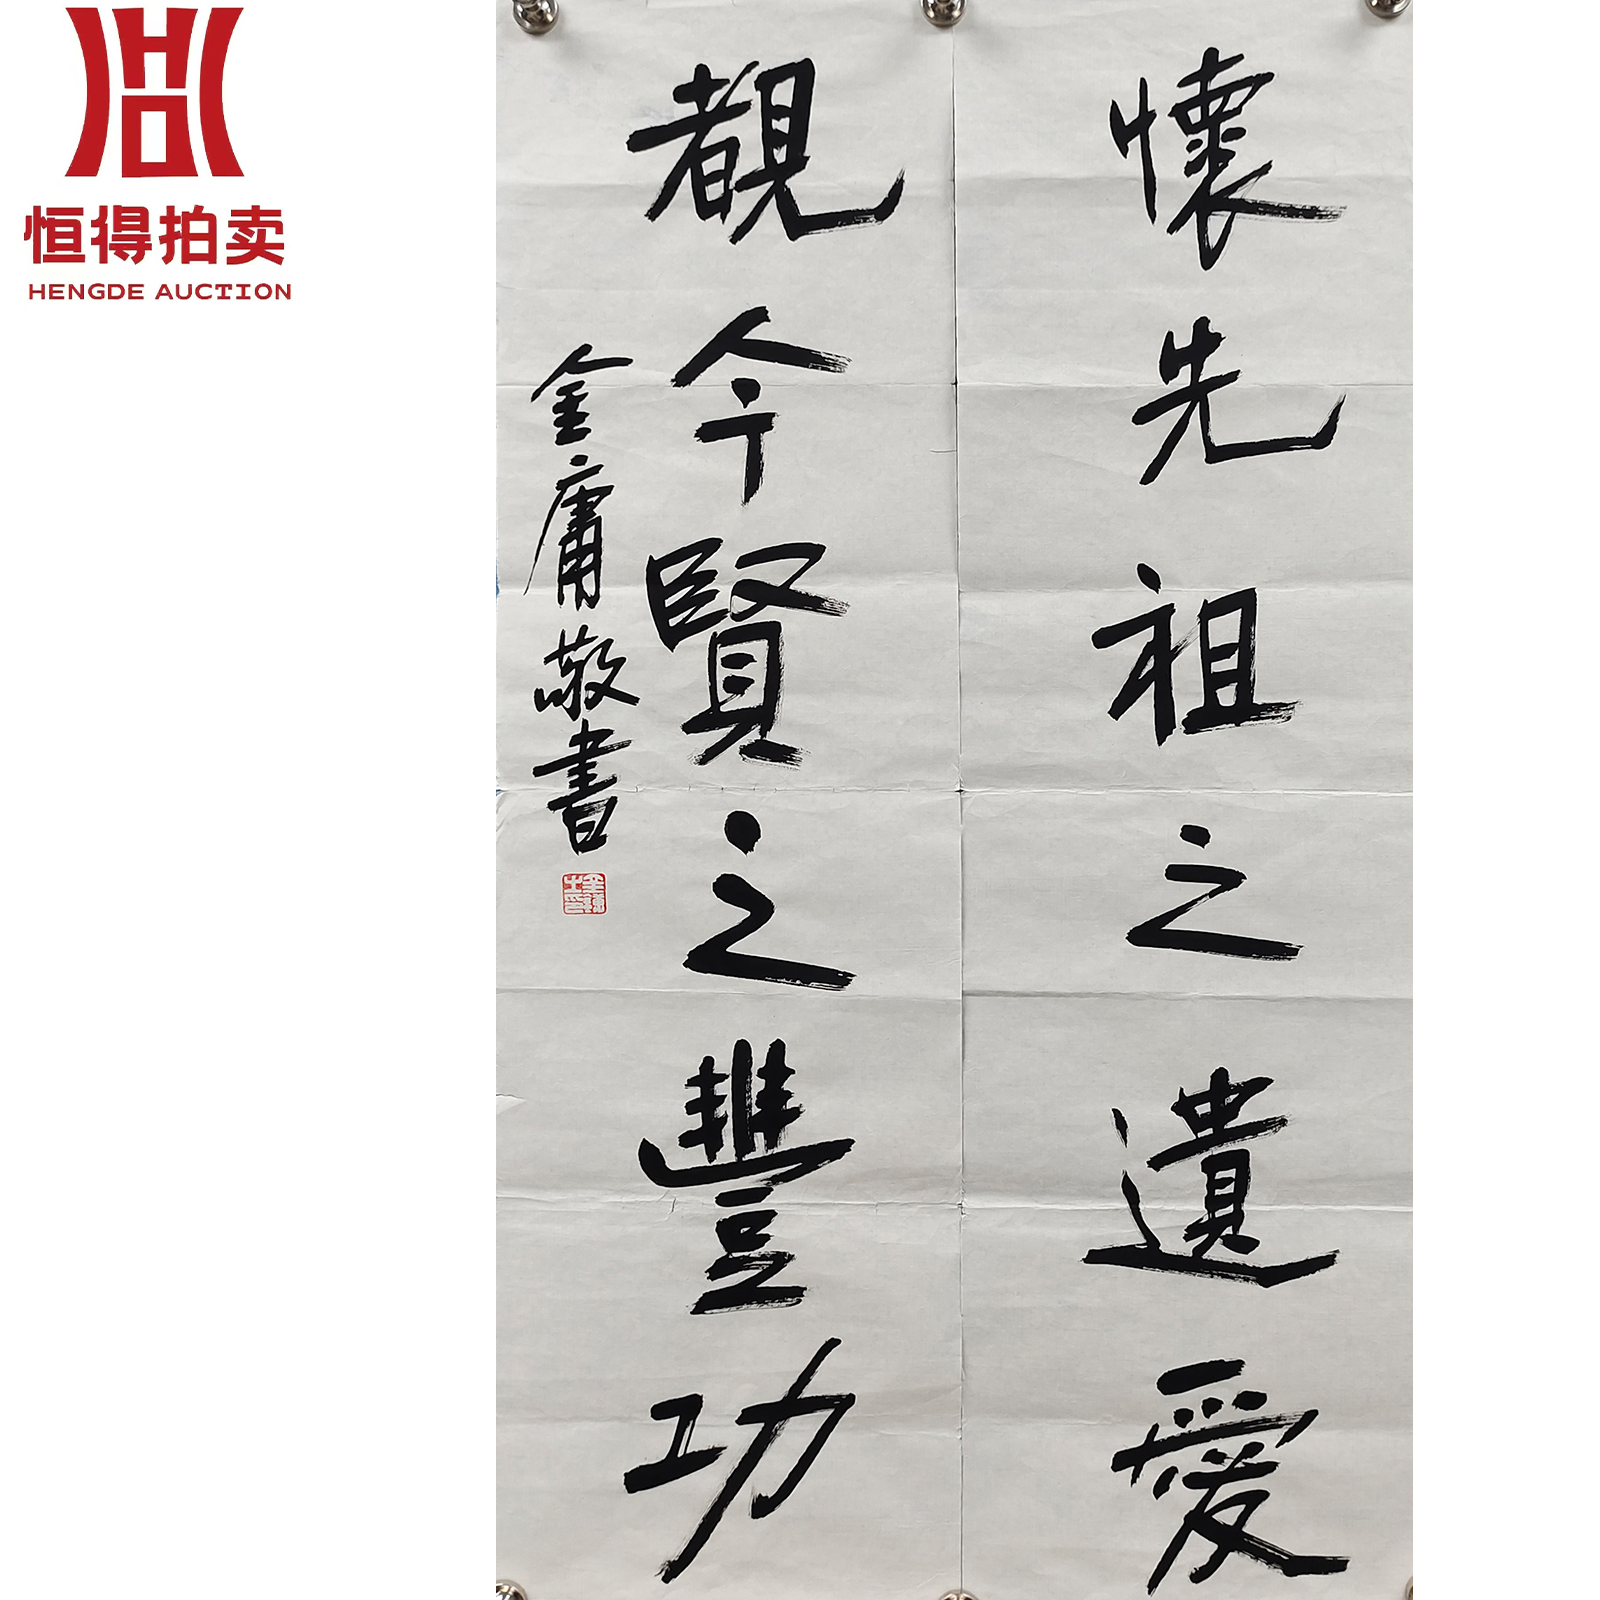 恒得拍卖
HENGDE AUCTION
懷先祖之遺愛
覩今賢之豐功
金庸敬書